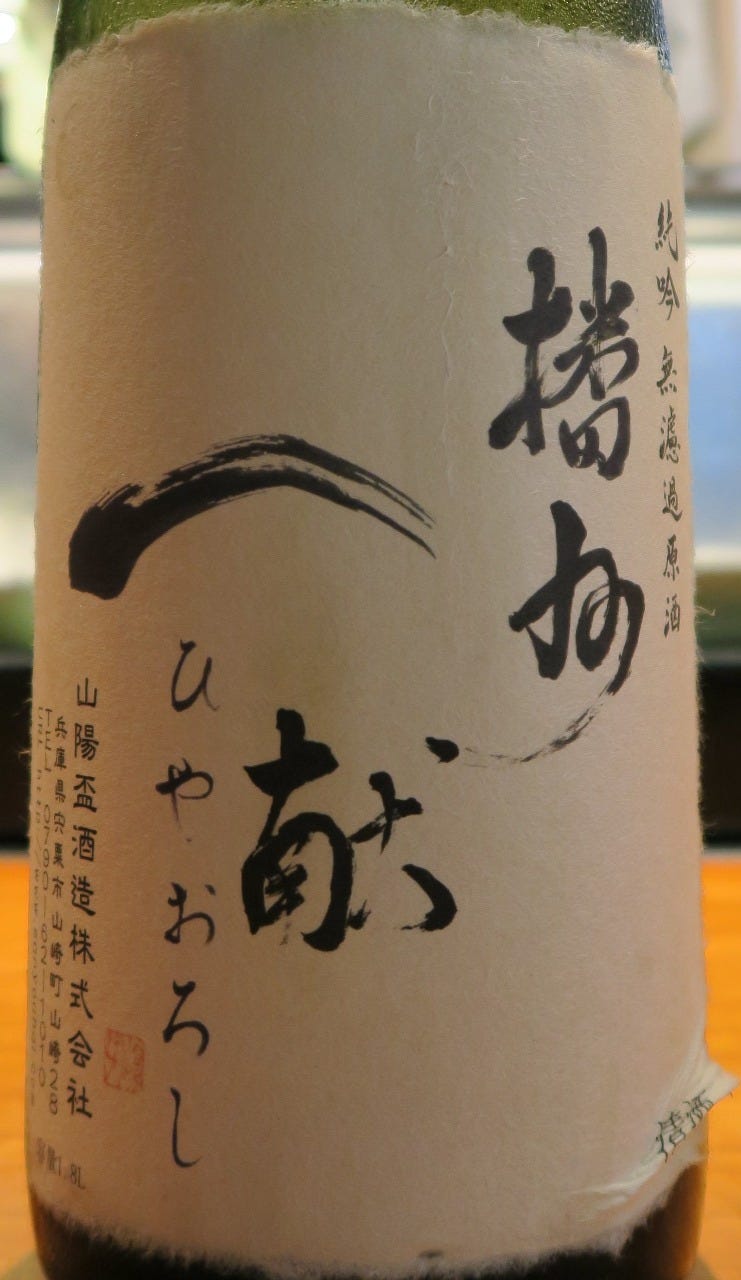 純吟 無濾過原酒
播州
一献
ひやおろし
山陽盃酒造株式会社
兵庫県宍粟市山崎町山崎28
TEL 0790-62-1010
容量1.8L
清酒